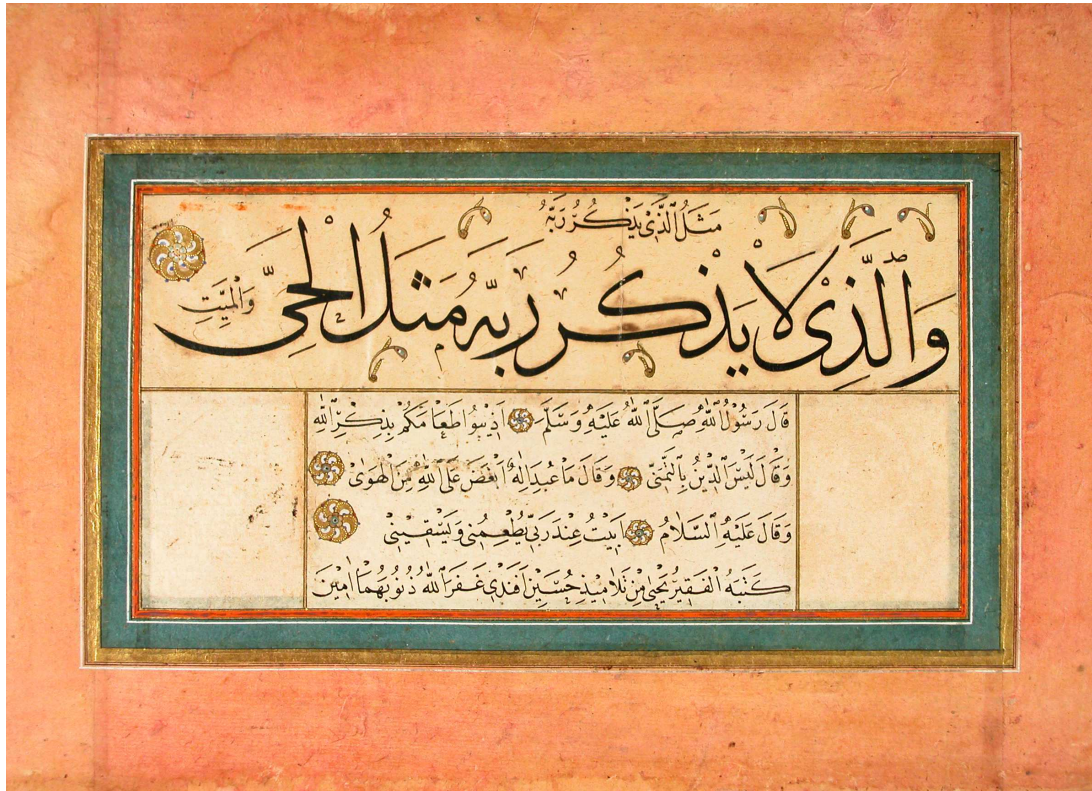 مَثَلُ الَّذِيْ يَذْكُرُ رَبَّهُ
وَالَّذِيْ لَا يَذْكُرُ رَبَّهُ مَثَلُ الْحَيِّ
وَالْمَيِّتِ
قَالَ رَسُوْلُ اللّٰهِ صَلَّى اللّٰهُ عَلَيْهِ وَسَلَّمَ اَذِيْبُوْا طَعَامَكُمْ بِذِكْرِ اللّٰهِ
وَقَالَ لَيْسَ الدِّيْنُ بِالتَّمَنِّيْ وَقَالَ مَا عُبِدَ اِلٰهٌ اَبْغَضَ عَلَى اللّٰهِ مِنَ الْهَوٰى
وَقَالَ عَلَيْهِ السَّلَامُ اَبِيْتُ عِنْدَ رَبِّيْ يُطْعِمُنِيْ وَيَسْقِيْنِيْ
كَتَبَهُ الْفَقِيْرُ يَحْيٰى مِنْ تَلَامِيْذِ حُسَيْن اَفَنْدِيْ غَفَرَ اللّٰهُ ذُنُوْبَهُمَا اٰمِيْنَ